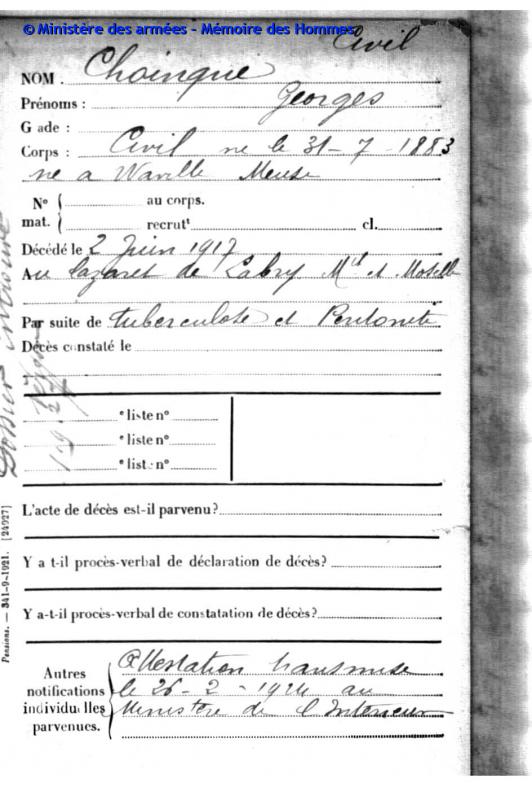 © Ministère des armées - Mémoire des Hommes
Civil
NOM . Choinque
Prénoms : Georges
G ade :
Corps : Civil né le 31-7-1883
né a Waville Meuse
N° au corps.
mat. recrutt cl.
Décédé le 2 Juin 1917
Au lazaret de Labry Mthe et Moselle
Par suite de tuberculose et Péritonite
Décès constaté le
e liste n°
e liste n°
e liste n°
L'acte de décès est-il parvenu ?
Y a t-il procès-verbal de déclaration de décès?
Y a-t-il procès-verbal de constatation de décès?
Autres notifications individuelles parvenues.
Attestation transmise
le 26-2-1924 au
Ministère de l'Intérieur
Pensions. — 341-9-1921. [24927]
Dossier